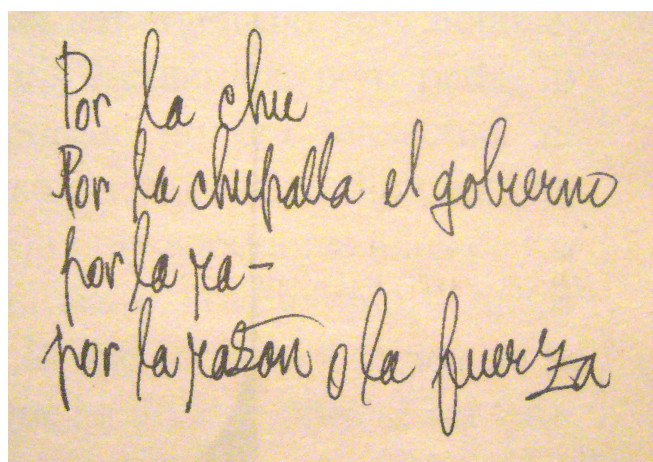 Por la chu
Por la chupalla el gobierno
por la ra-
por la razón o la fuerza